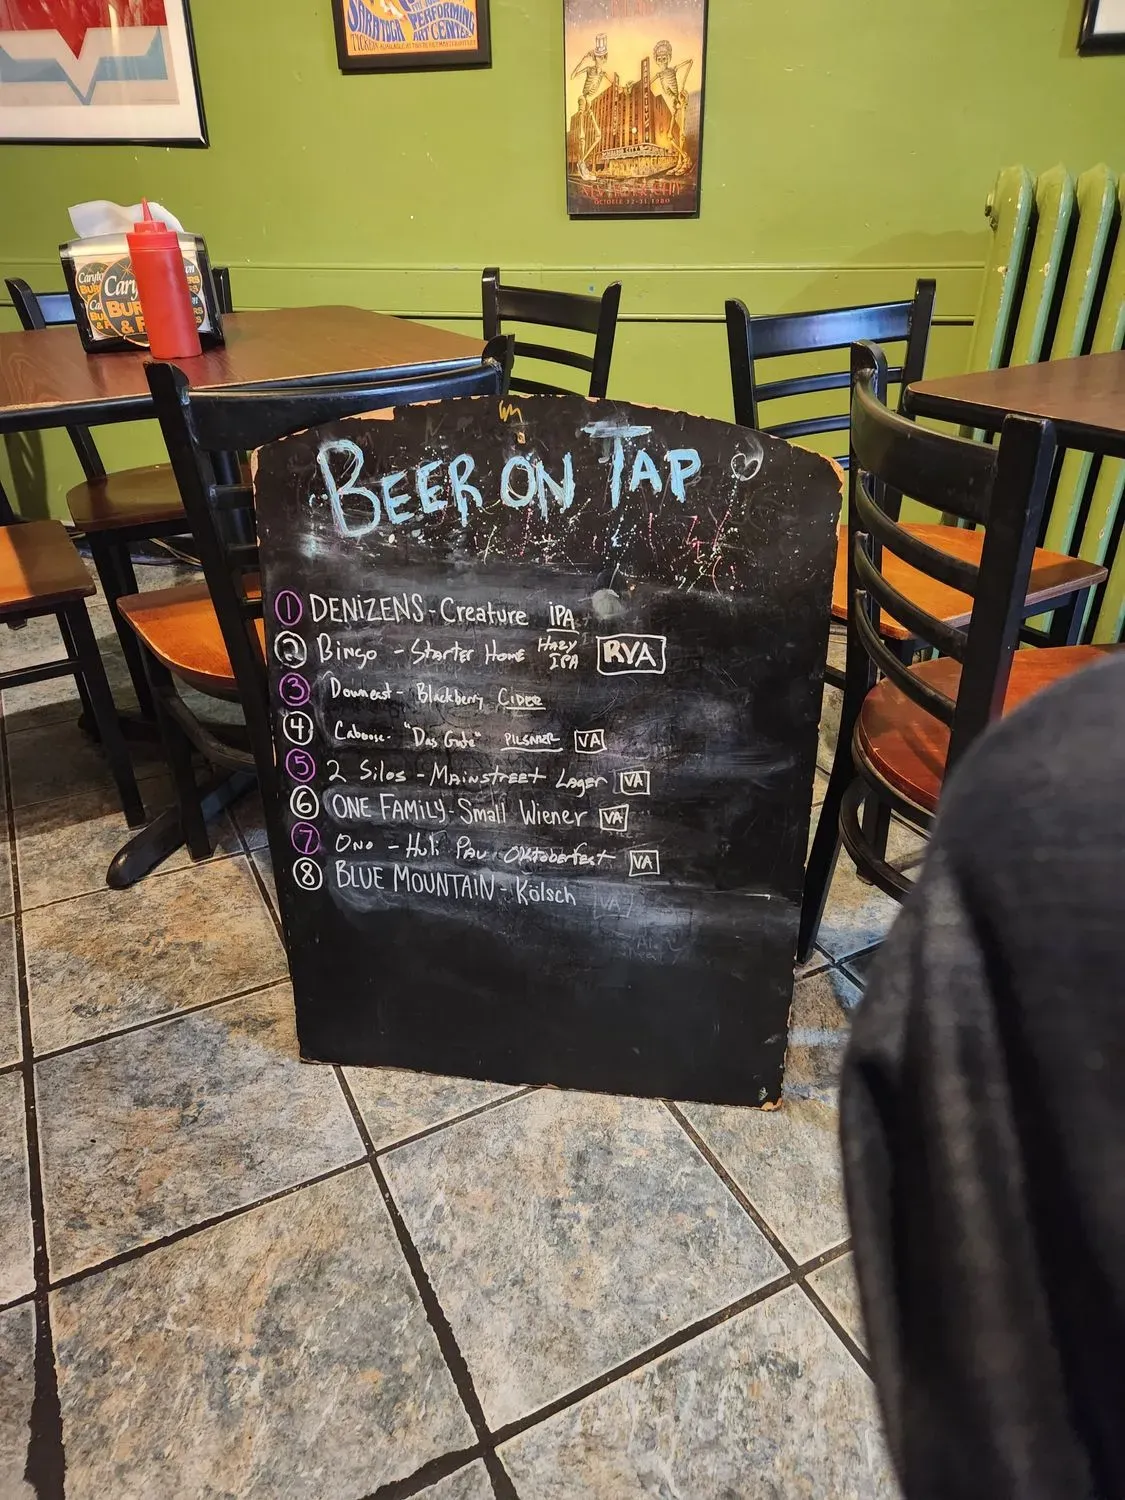 SARATOGA PERFORMING
ART CENTER
TICKETS AVAILABLE AT
RADIO CITY
OCTOBER 22-31 1980
Cary
BUR
& F
BEER ON TAP
1 DENIZENS - Creature IPA
2 Bingo - Starter Home HAZY IPA RVA
3 Downeast - Blackberry CIDER
4 Caboose - "Das Gute" PILSNER VA
5 2 Silos - Mainstreet Lager VA
6 ONE FAMILY - Small Wiener VA
7 Ono - Huli Pau Oktoberfest VA
8 BLUE MOUNTAIN - Kölsch VA